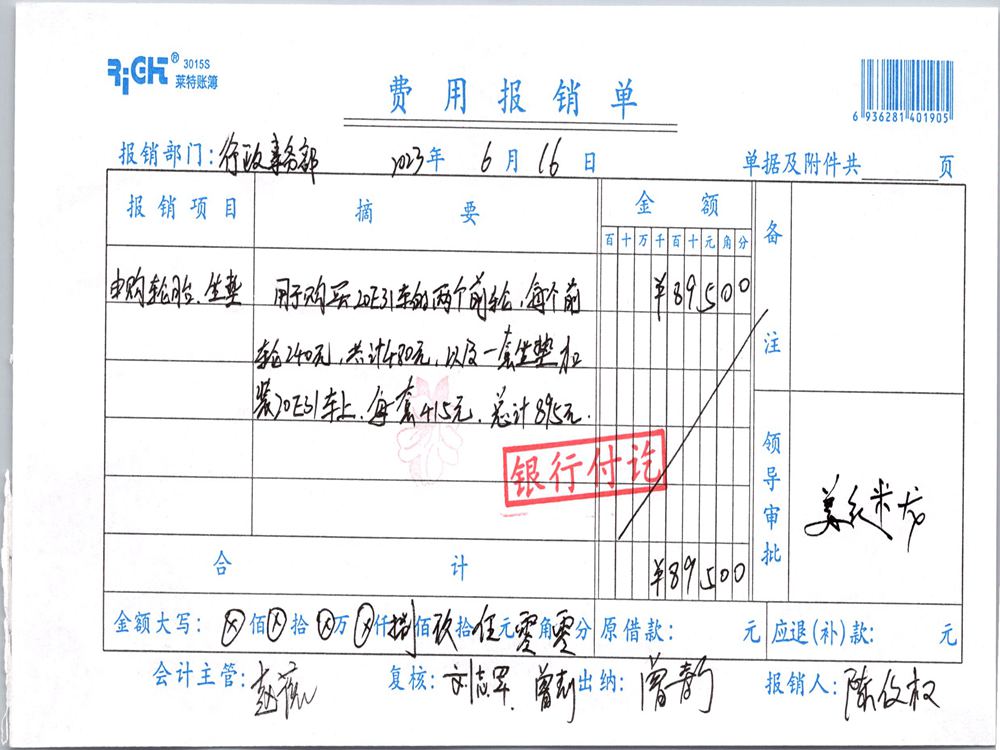 RiGHT® 3015S
莱特账簿
费用报销单
6 936281 401905
报销部门：行政事务部 2023年 6月16日 单据及附件共 页
报销项目 摘要 金额 备注
百十万千百十元角分
申购轮胎、坐垫 用于购买20E31车的两个前轮，每个前 ¥89500
轮240元，共计480元，以及一套坐垫扣
装20E31车上，每套415元，总计895元.
银行付讫
领导审批
合计 ¥89500
金额大写：ⓧ佰ⓧ拾ⓧ万ⓧ仟捌佰玖拾伍元零角零分 原借款： 元 应退(补)款： 元
会计主管： 复核：刘志军 出纳： 报销人：陈俊权